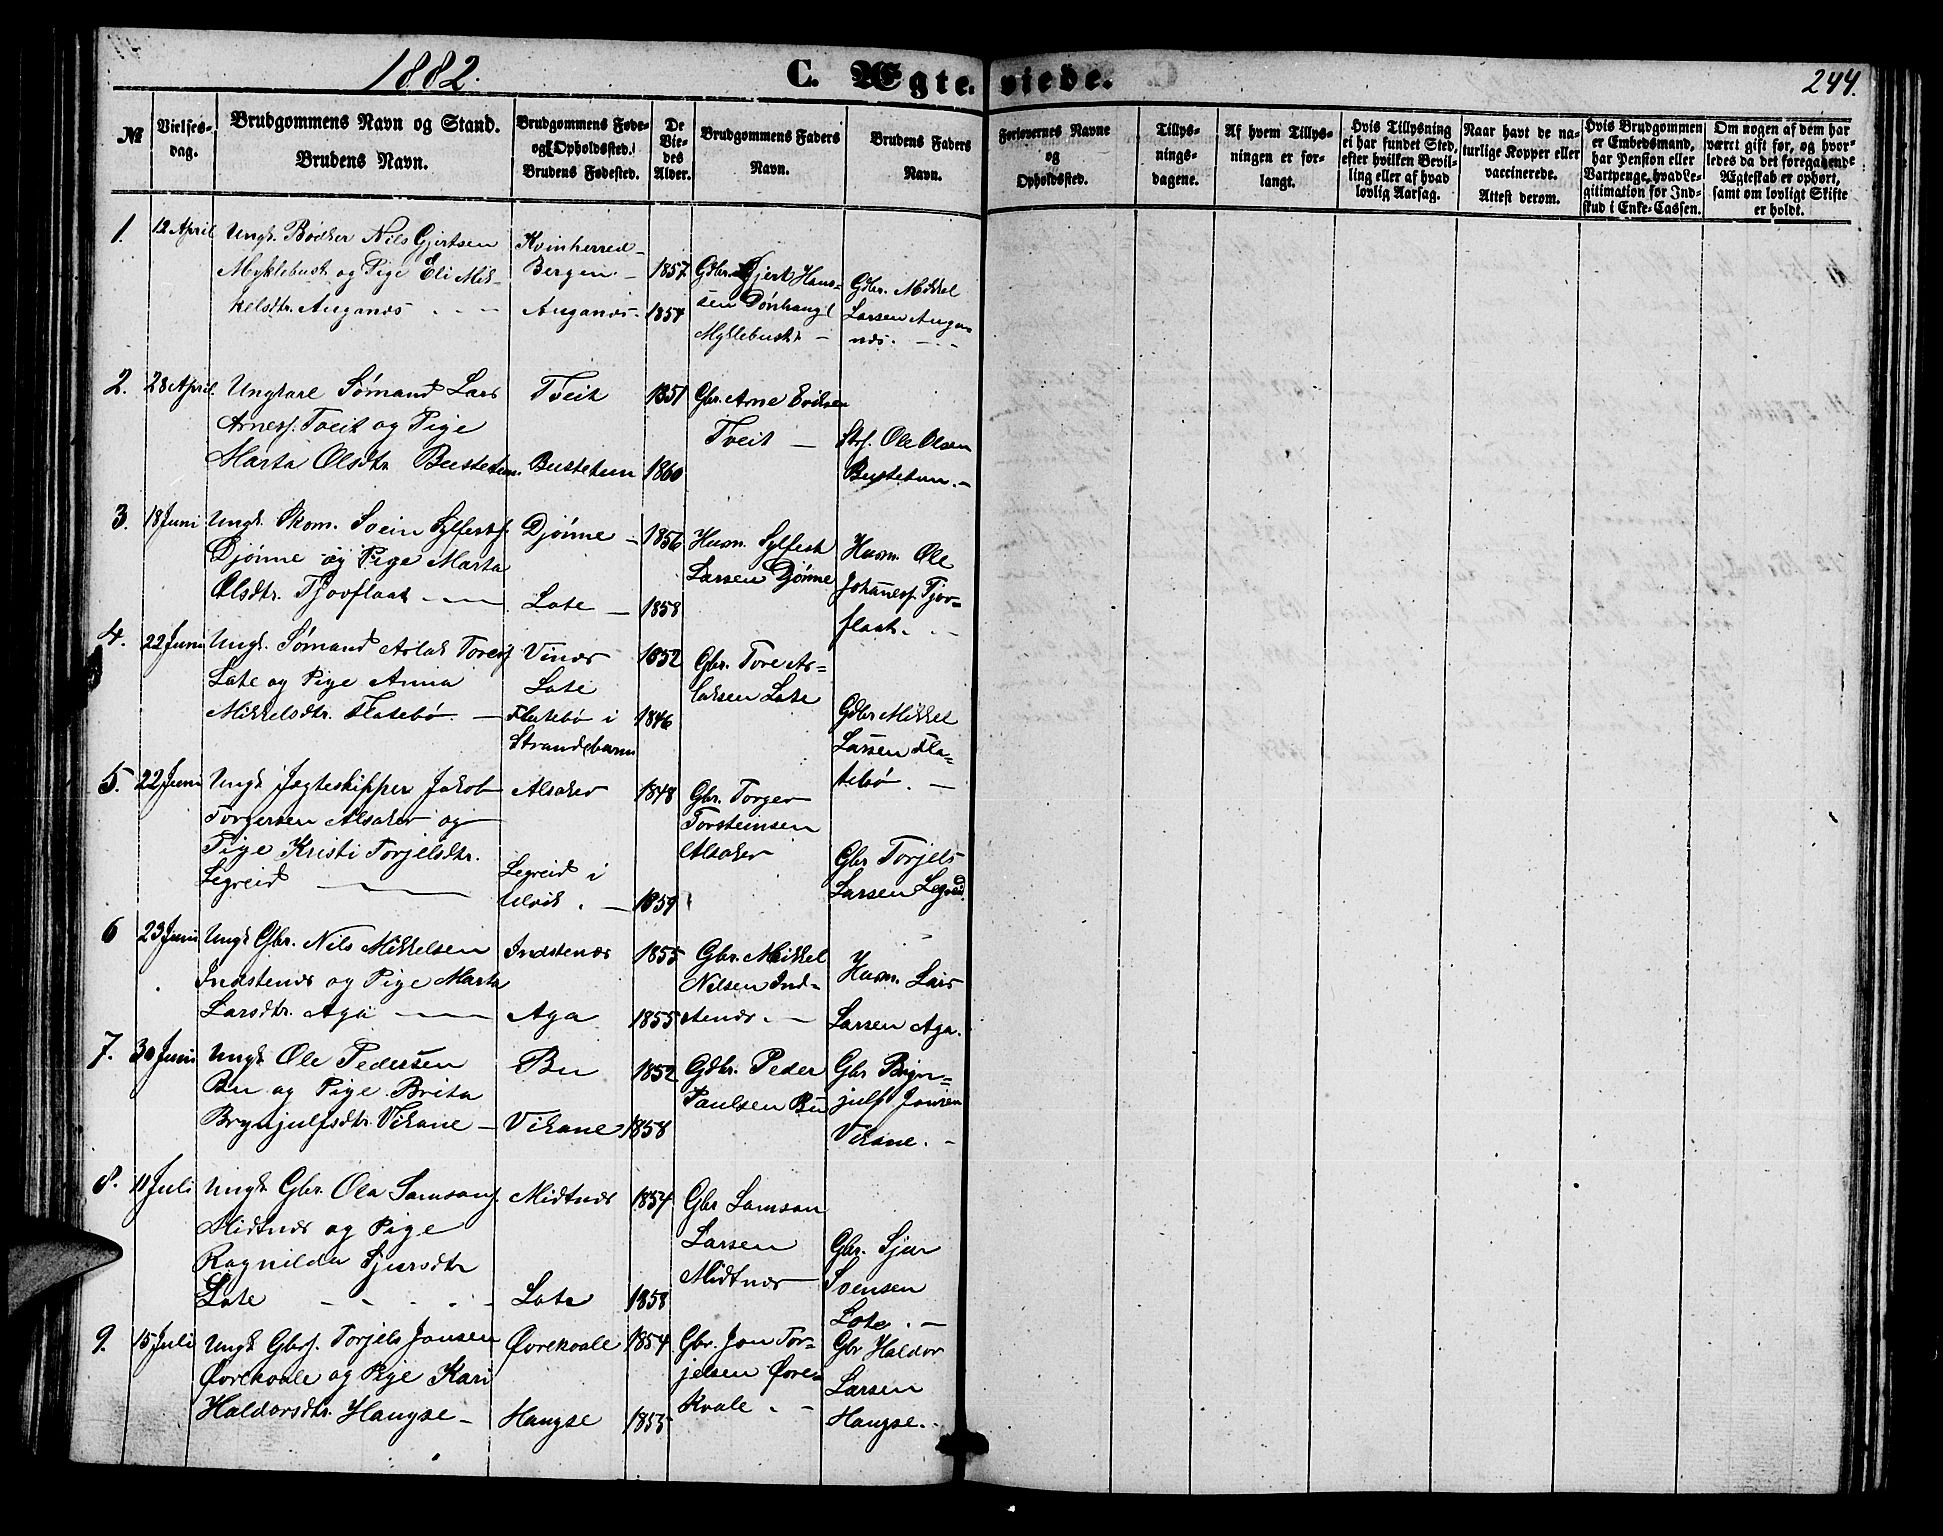 1882.
C. Ægteviede.
244.
№
Vielses-
dag.
Brudgommens Navn og Stand.
Brudens Navn.
Brudgommens Føde-
og Opholdssted.
Brudens Fødested.
De
Vie-
des
Alder.
Brudgommens Faders
Navn.
Brudens Faders
Navn.
Forlovernes Navne
og
Opholdssted.
Tillys-
nings-
dagene.
Af hvem Tillys-
ningen er for-
langt.
Hvis Tillysning
ei har fundet Sted,
efter hvilken Bevil-
ling eller af hvad
lovlig Aarsag.
Naar havt de na-
turlige Kopper eller
vaccinerede.
Attest derom.
Hvis Brudgommen
er Embedsmand,
har Pension eller
Vartpenge, hvad Le-
gitimation for Ind-
skud i Enke-Cassen.
Om nogen af dem har
været gift før, og hvor-
ledes da det foregaaende
Ægteskab er ophørt,
samt om lovligt Skifte
er holdt.
1.
12 April
Ungk. Bødker Nils Gjertsen
Myklebust og Pige Eli Mik-
kelsdtr. Auganes
Kvinherred
Bergen. -
Auganes.
1857
1854
Gdbr. Gjert Han-
sen
Myklebust -
Gdbr. Mikkel
Larsen Auga-
nes.
2.
28 April
Ungkarl Sømand Lars
Arnesf. Tveit og Pige
Marta Olsdtr. Bustetun.
Tveit
Bustetun
1851
1860
Gbr. Arne Eriksen
Tveit -
Strf. Ole Olsen
Bustetun. -
3.
18 Juni
Ungk. Skom. Svein Sylfestsf.
Djønne og Pige Marta
Olsdtr. Tjovflaat
Djønne -
Lote -
1856
1858
Husm. Sylfest
Larsen Djønne
Husm. Ole
Johannesf. Tjov-
flaat.
4.
22 Juni
Ungk. Sømand Aslak Toresf.
Lote og Pige Anna
Mikkelsdtr. Flatebø. -
Vines
Lote
Flatebø i
Strandebarm
1852
1846
Gbr. Tore As-
laksen Lote
Gdbr Mikkel
Larsen Fla-
tebø. -
5.
22 Juni
Ungk Jagteskipper Jakob
Torgersen Alsaker og
Pige Kristi Torjelsdtr.
Legreid
Alsaker
Legreid i
Ulvik. -
1848
1859
Gbr. Torger
Torsteinsen
Alsaker
Gbr Torjels
Larsen Legreid.
6
23 Juni
Ungk Gbr. Nils Mikkelsen
Indstenes og Pige Marta
Larsdtr. Aga
Indstenes
Aga
1855
1855
Gbr. Mikkel
Nilsen Ind-
stenes. -
Husm. Lars
Larsen Aga.
7.
30 Juni
Ungk Ole Pedersen
Bu og Pige Brita
Brynjulfsdtr. Vikane -
Bu
Vikane
1852
1858
Gdbr. Peder
Paulsen Bu
Gbr Bryn-
julf Jonsen
Vikane. -
8.
11 Juli
Ungk Gbr. Ola Samsonsf.
Midtnes og Pige
Ragnilda Sjursdtr
Lote
Midtnes
Lote
1854
1858
Gbr Samson
Larsen
Midtnes
Gbr. Sjur
Svensen
Lote. -
9.
15 Juli
Ungk Gbrs. Torjels Jonsen
Øvrekvale og Pige Kari
Haldorsdtr. Haugse -
Øvrekvale
Haugse
1854
1855
Gbr. Jon Tor-
jelsen Øvre-
kvale. -
Gbr Haldor
Larsen
Haugse.